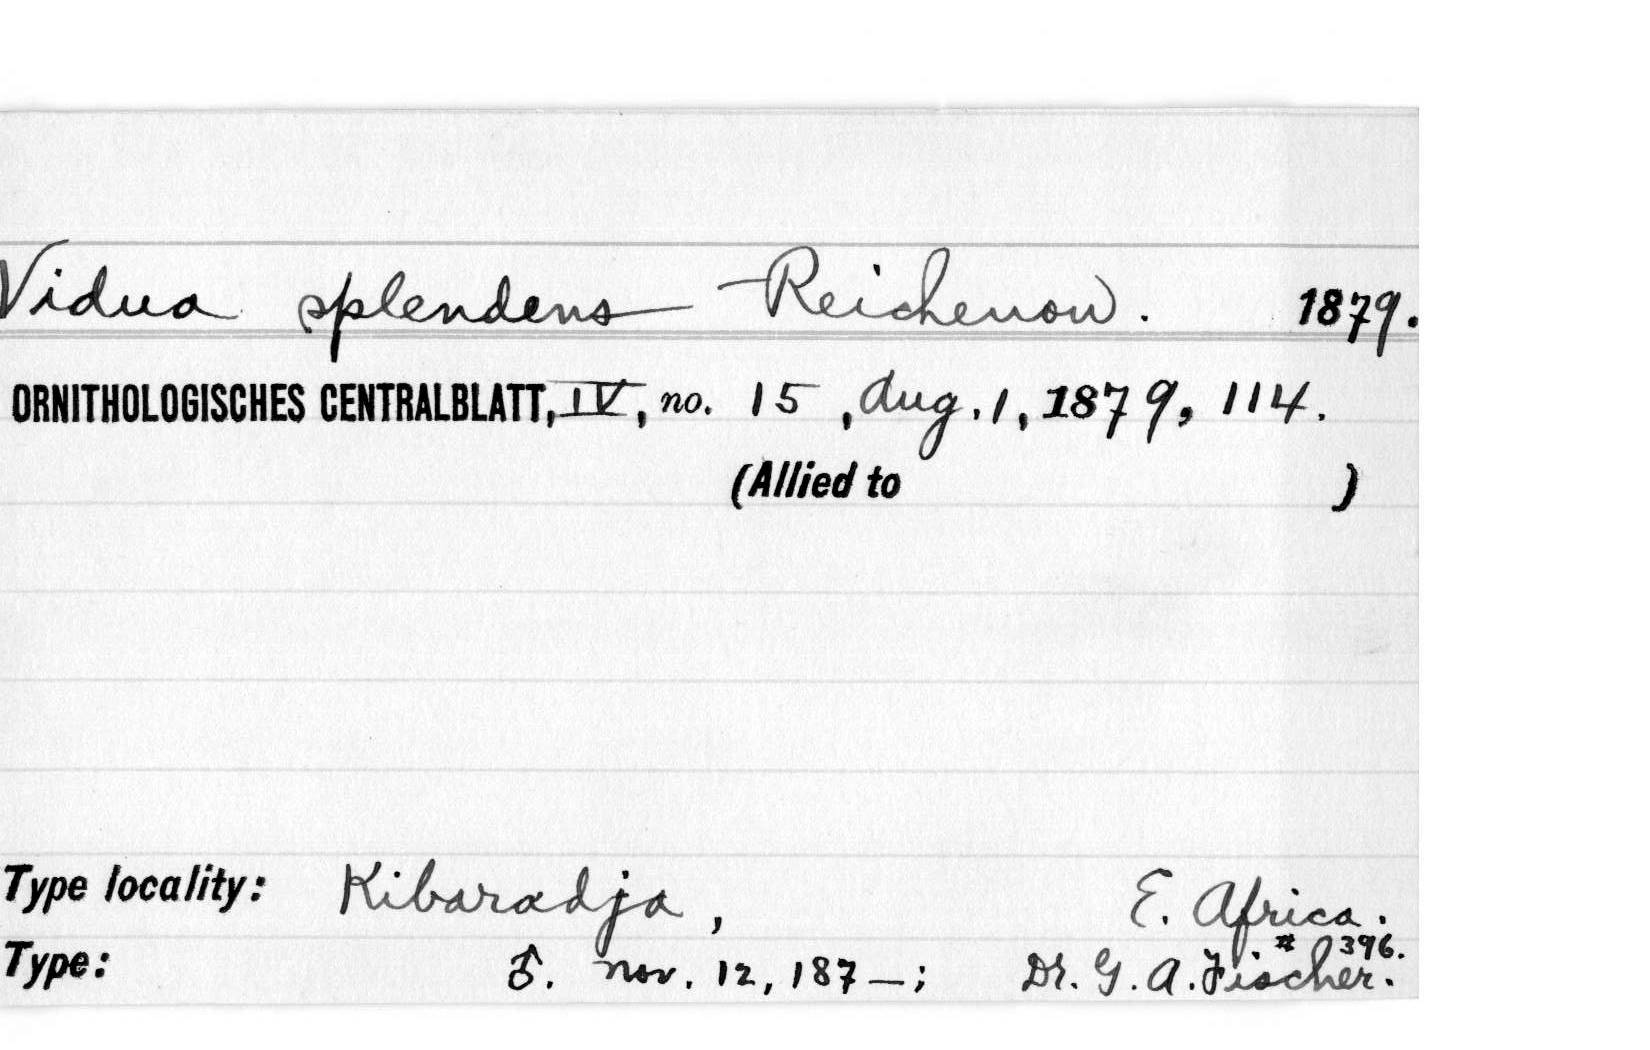 Vidua splendens Reichenow. 1879.
ORNITHOLOGISCHES CENTRALBLATT, IV, no. 15, Aug. 1, 1879, 114.
(Allied to )
Type locality: Kibaradja, E. Africa.
# 396.
Type: ♂. Nov. 12, 187–; Dr. G. A. Fischer.